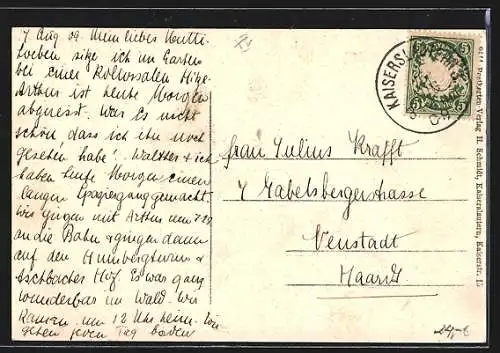 7 Aug 09 Mein liebes Mutti
soeben sitze ich im Garten
bei einer kollossalen Hitze
Arthur ist heute Morgen
abgereist. War Es nicht
schön dass ich ihn noch
gesehen habe! Walther & ich
haben heute Morgen einen
langen Spaziergang gemacht.
wir gingen mit Arthur um 7
an die Bahn & gingen dann
auf den Humbergturm &
Aschbacher Hof. Es war ganz
wunderbar im Wald. wir
kamen um 12 Uhr heim. Wir
gehen jeden Tag baden
Frau Julius Krafft
7 Gabelsbergerstrasse
Neustadt
Haardt
KAISERSL
5
5
6141 Postkarten-Verlag H. Schmidt, Kaiserslautern, Kaiserstr. 15